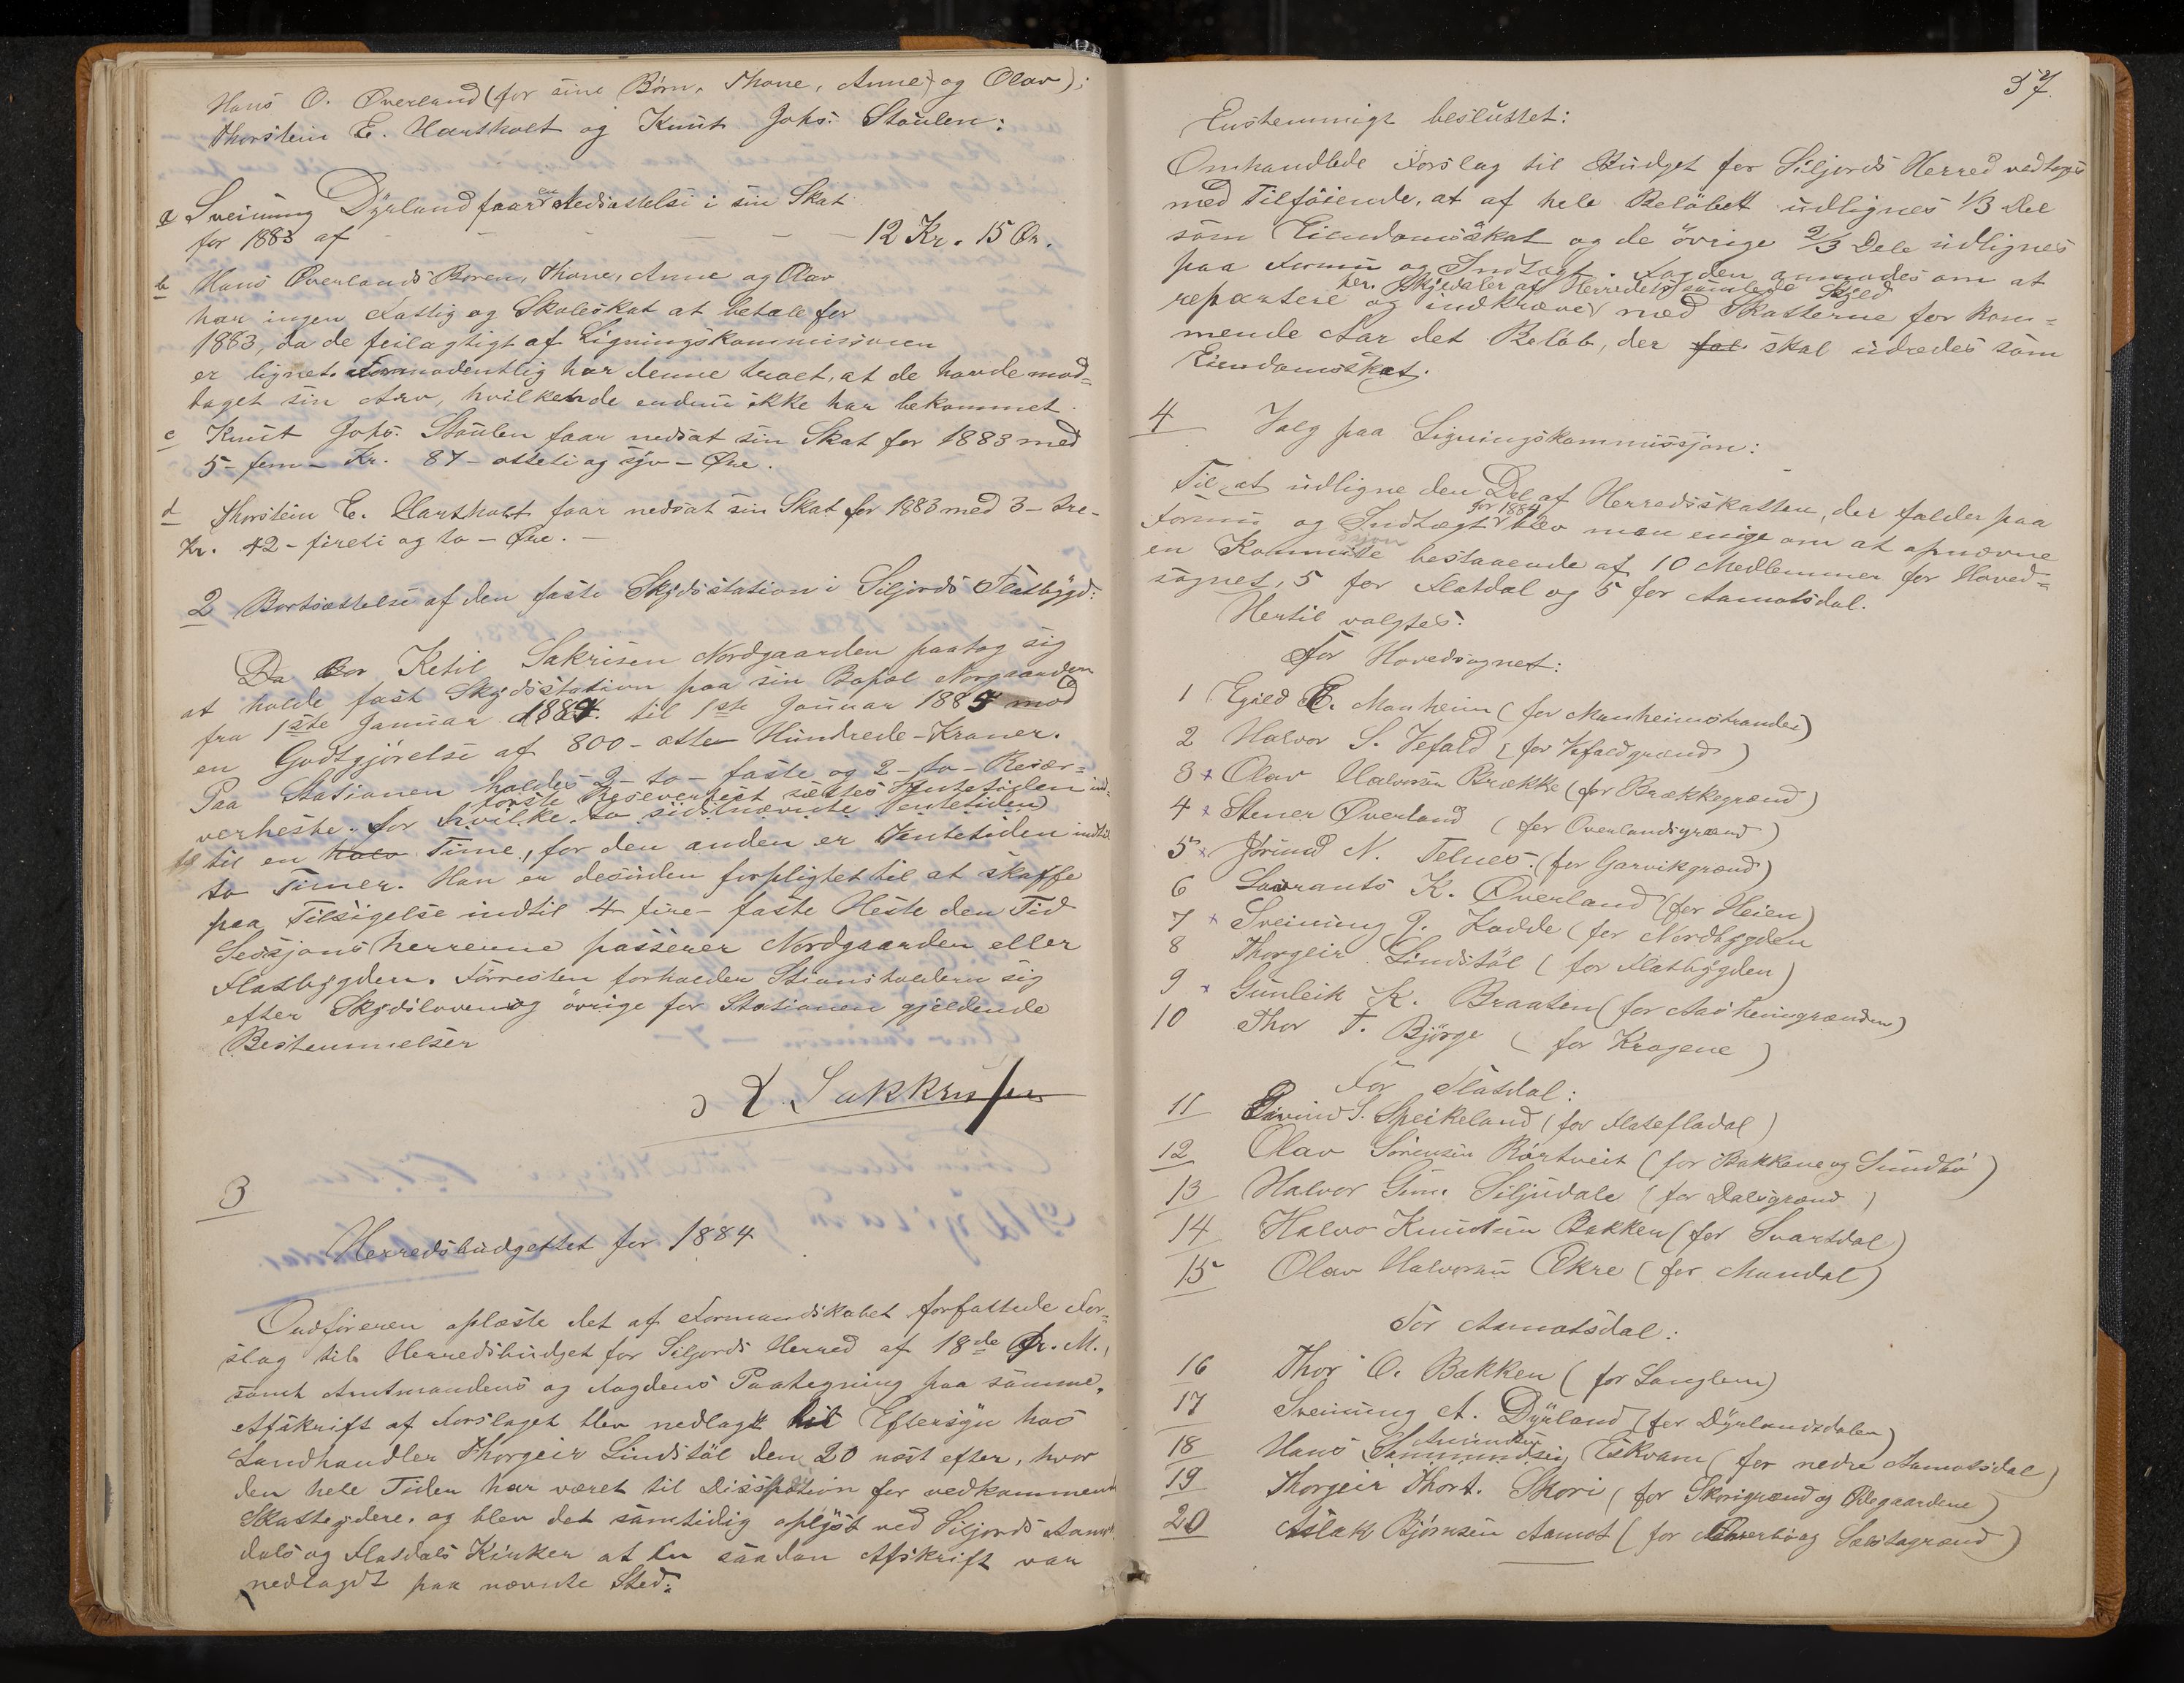 Hans O. Øverland (for sine Børn, Thone, Anne og Olav);
Thorstein E. Hartholt og Knut Johs. Stoulen:
a Sveinung Dyrland faar en Nedsættelse i sin Skat
for 1883 af - - - - - 12 Kr. 15 Ør.
b Hans Øverlands Børen, Thone, Anne og Olav
har ingen Fattig og Skoleskat at betale for
1883, da de feilagtigt af Ligningskommisionen
er lignet. Formodentlig har denne troet, at de havde mod=
taget sin Arv, hvilken de endnu ikke har bekommet.
c Knut Johs. Stoulen faar nedsat sin Skat for 1883 med
5 - fem - Kr. 87 - otteti og syv - Øre.
d Thorstein E. Hartholt faar nedsat sin Skat for 1883 med 3 - tre -
Kr. 42 - fireti og to - Øre. -
2 Bortsættelse af den faste Skydsstation i Siljords Flatbygd:
Da Ketil Sakrisen Nordgaarden paatog sig
at holde fast Skydsstation paa sin Bopæl Norgaarden
fra 1ste Januar 1884 til 1ste Januar 1885 mod
en Godtgjörelse af 800 - otte Hundrede - Kroner.
Paa Stationen holdes 2 - to - faste og 2 - to - Reser=
verheste. for hvilke to sidstnævnte Ventetiden
første Reseverhest sættes Ventetiden ind=
til en halv Time, for den anden er Ventetiden indtil
to Timer. Han er desuden forpligtet til at skaffe
paa Tilsigelse indtil 4 - fire - faste Heste den Tid
Sessjonsherrerne passerer Nordgaarden eller
Flatbygden. Förresten forholder Stionsholderen sig
efter Skydsloven og övrige for Stationen gjeldende
Bestemmelser
K Sakkrisen
3
Herredsbudgettet for 1884
Ordføreren oplæste det af Formandskabet forfattede For=
slag til Herredsbudget for Siljords Herred af 18de fr. M.,
samt Amtmandens og Fogdens Paategning paa samme.
Afskrift af Forslaget blev nedlagt til Eftersyn hos
Landhandler Thorgeir Lindstöl den 20 næst efter, hvor
den hele Tiden har været til Disposition for vedkommende
Skatteydere, og blev det samtidig oplyst ved Siljords Aamots=
dals og Flatdals Kirker at en saadan Afskrift var
nedlagdt paa nævnte Sted.
57.
Enstemmigt besluttet:
Omhandlede Forslag til Budget for Siljords Herred vedtages
med Tilföiende, at af hele Belöbet udlignes 1/3 Del
som Eiendomsskat og de övrige 2/3 Dele udlignes
paa Formu og Indtægt. Fogden anmodes om at
per. Skjeldaler af Herredets samlede Skyld
repartere og indkræve med Skatterne for kom=
mende Aar det Beløb, der skal udredes som
Eiendomsskat.
4 Valg paa Ligningskommissjon:
Til at udligne den Del af Herredsskatten, der falder paa
Formu og Indtægt for 1884 blev man enige om at opnævne
en Kommite bestaaende af 10 Medlemmer for Hoved=
sognet, 5 for Flatdal og 5 for Aamotsdal.
Hertil valgtes:
For Hovedsognet:
1 Egild E. Manheim (for Manheimstranden)
2 Halvor S. Vefald (for Vefaldgrænd)
3 x Olav Halvorsen Brække (for Brækkegrænd)
4 x Stener Øverland (for Overlandsgrænd)
5 x Jörund N. Telnes. (for Garvikgrænd)
6 Laurants K. Øverland (for Heien)
7 x Sveinung G. Kodde (for Nordbygden
8 Thorgeir Lindstöl (for Flatbygden)
9 x Gunleik K. Braaten (for Aasheimgrænden)
10 Thor T. Björge (for Krogene)
For Flatdal:
11 Eivind S. Speikeland (for Flatefladal)
12 Olav Sörensen Rörtveit (for Bakkene og Sundbö)
13 Halvor Gun. Siljudale (for Dalsgrænd)
14 Halvo Knudsen Bakken (for Svartdal)
15 Olav Halvorsen Ekre (for Mandal)
For Aamotsdal:
16 Thor O. Bakken (for Langlem)
17 Sveinung A. Dyrland (for Dyrlandsdalen)
18 Hans Amundsen Eskvam (for nedre Aamotsdal)
19 Thorgeir Thort. Skori (for Skorigrænd og Ødegaardene)
20 Aslak Bjørnsen Aamot (for og Sælstagrænd)